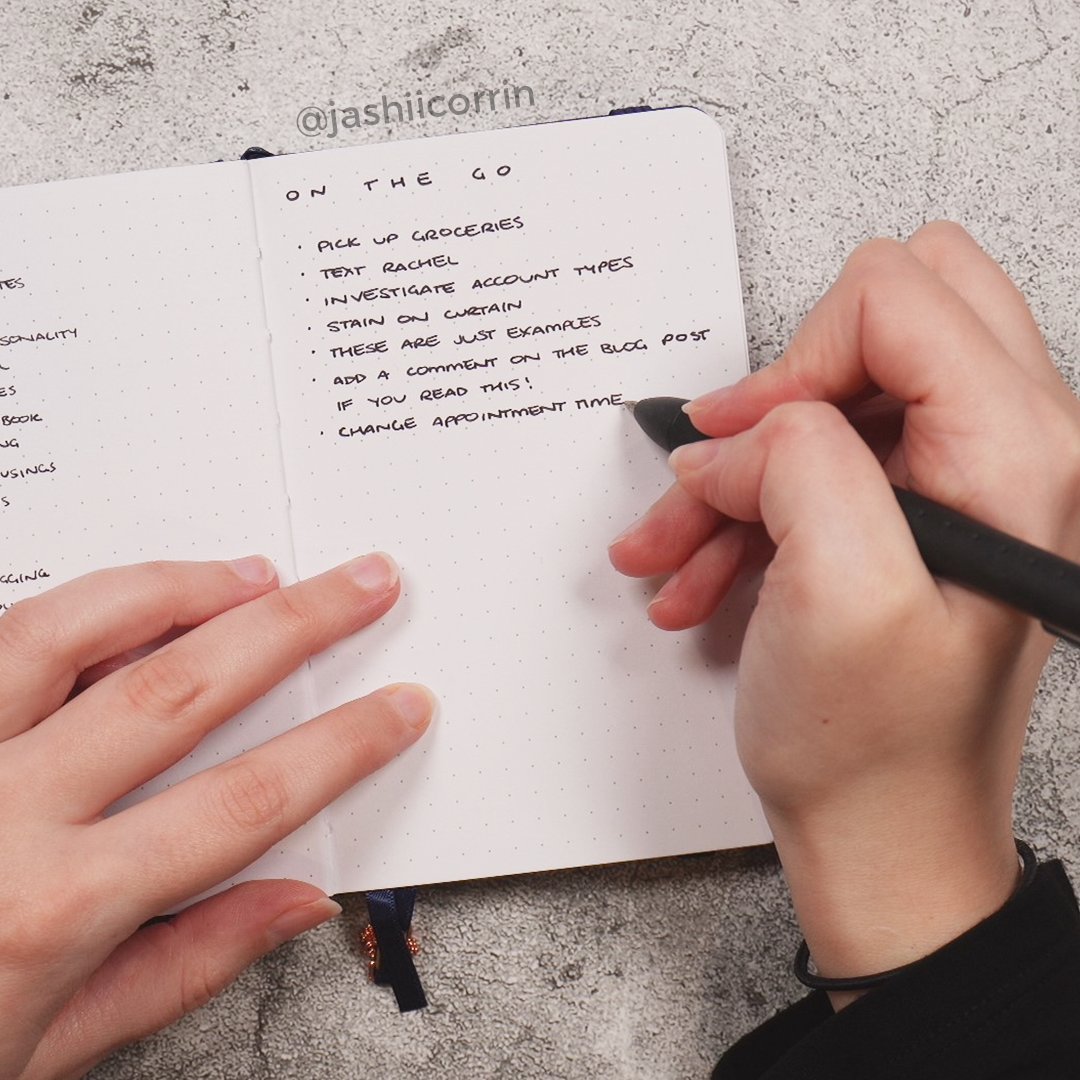 @jashiicorrin
ON THE GO
· PICK UP GROCERIES
· TEXT RACHEL
· INVESTIGATE ACCOUNT TYPES
· STAIN ON CURTAIN
· THESE ARE JUST EXAMPLES
· ADD A COMMENT ON THE BLOG POST
IF YOU READ THIS!
· CHANGE APPOINTMENT TIME
TES
SONALITY
ES
BOOK
NG
USINGS
S
GGING